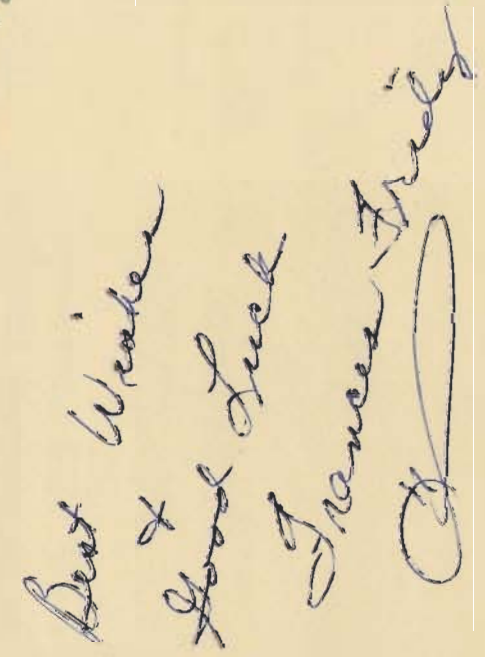 Best Wishes
&
Good Luck
Frances